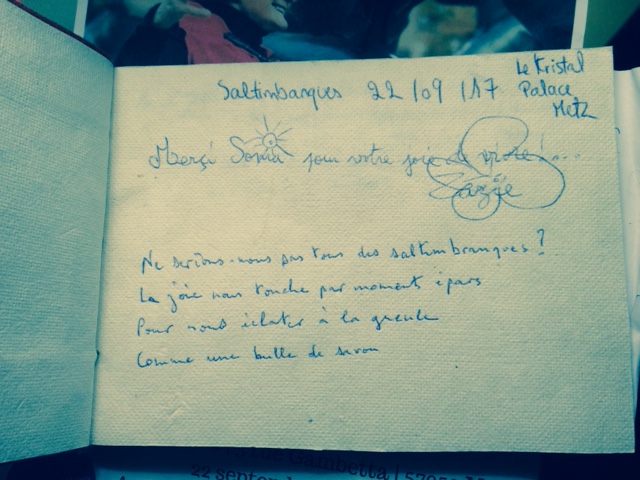 Saltimbanques 22/09/17
Le Kristal
Palace
Metz
Merçi Sonia pour votre joie de vivre!...
Zazïe
Ne serions-nous pas tous des saltimbranques?
La joie nous touche par moment épars
Pour nous éclater à la gueule
Comme une bulle de savon
rue Gambetta | 57
22 septemb